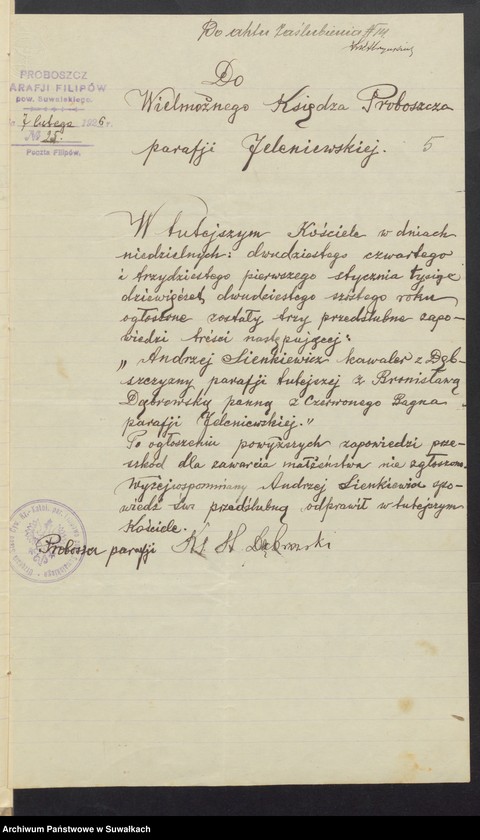 Do aktu zaślubienia № 14
PROBOSZCZ
PARAFJI FILIPÓW
pow. Suwalskiego.
7 lutego 1926 r.
№ 25.
Poczta Filipów.
Do
Wielmożnego Księdza Proboszcza
parafji Jeleniewskiej. 5
W tutejszym Kościele w dniach
niedzielnych: dwudziestego czwartego
i trzydziestego pierwszego stycznia tysiąc
dziewięćset dwudziestego szóstego roku
ogłoszone zostały trzy przedślubne zapo-
wiedzi treści następującej:
„Andrzej Sienkiewicz kawaler z Dęb-
szczyzny parafji tutejszej z Bronisławą
Dąbrowską panną z Czerwonego Bagna
parafji Jeleniewskiej."
Po ogłoszeniu powyższych zapowiedzi prze-
szkód dla zawarcia małżeństwa nie zgłoszono.
Wyżejwspomniany Andrzej Sienkiewicz spo-
wiedź św. przedślubną odprawił w tutejszym
Kościele.
Proboszcz parafji Ks St Dąbrowski
Archiwum Państwowe w Suwałkach